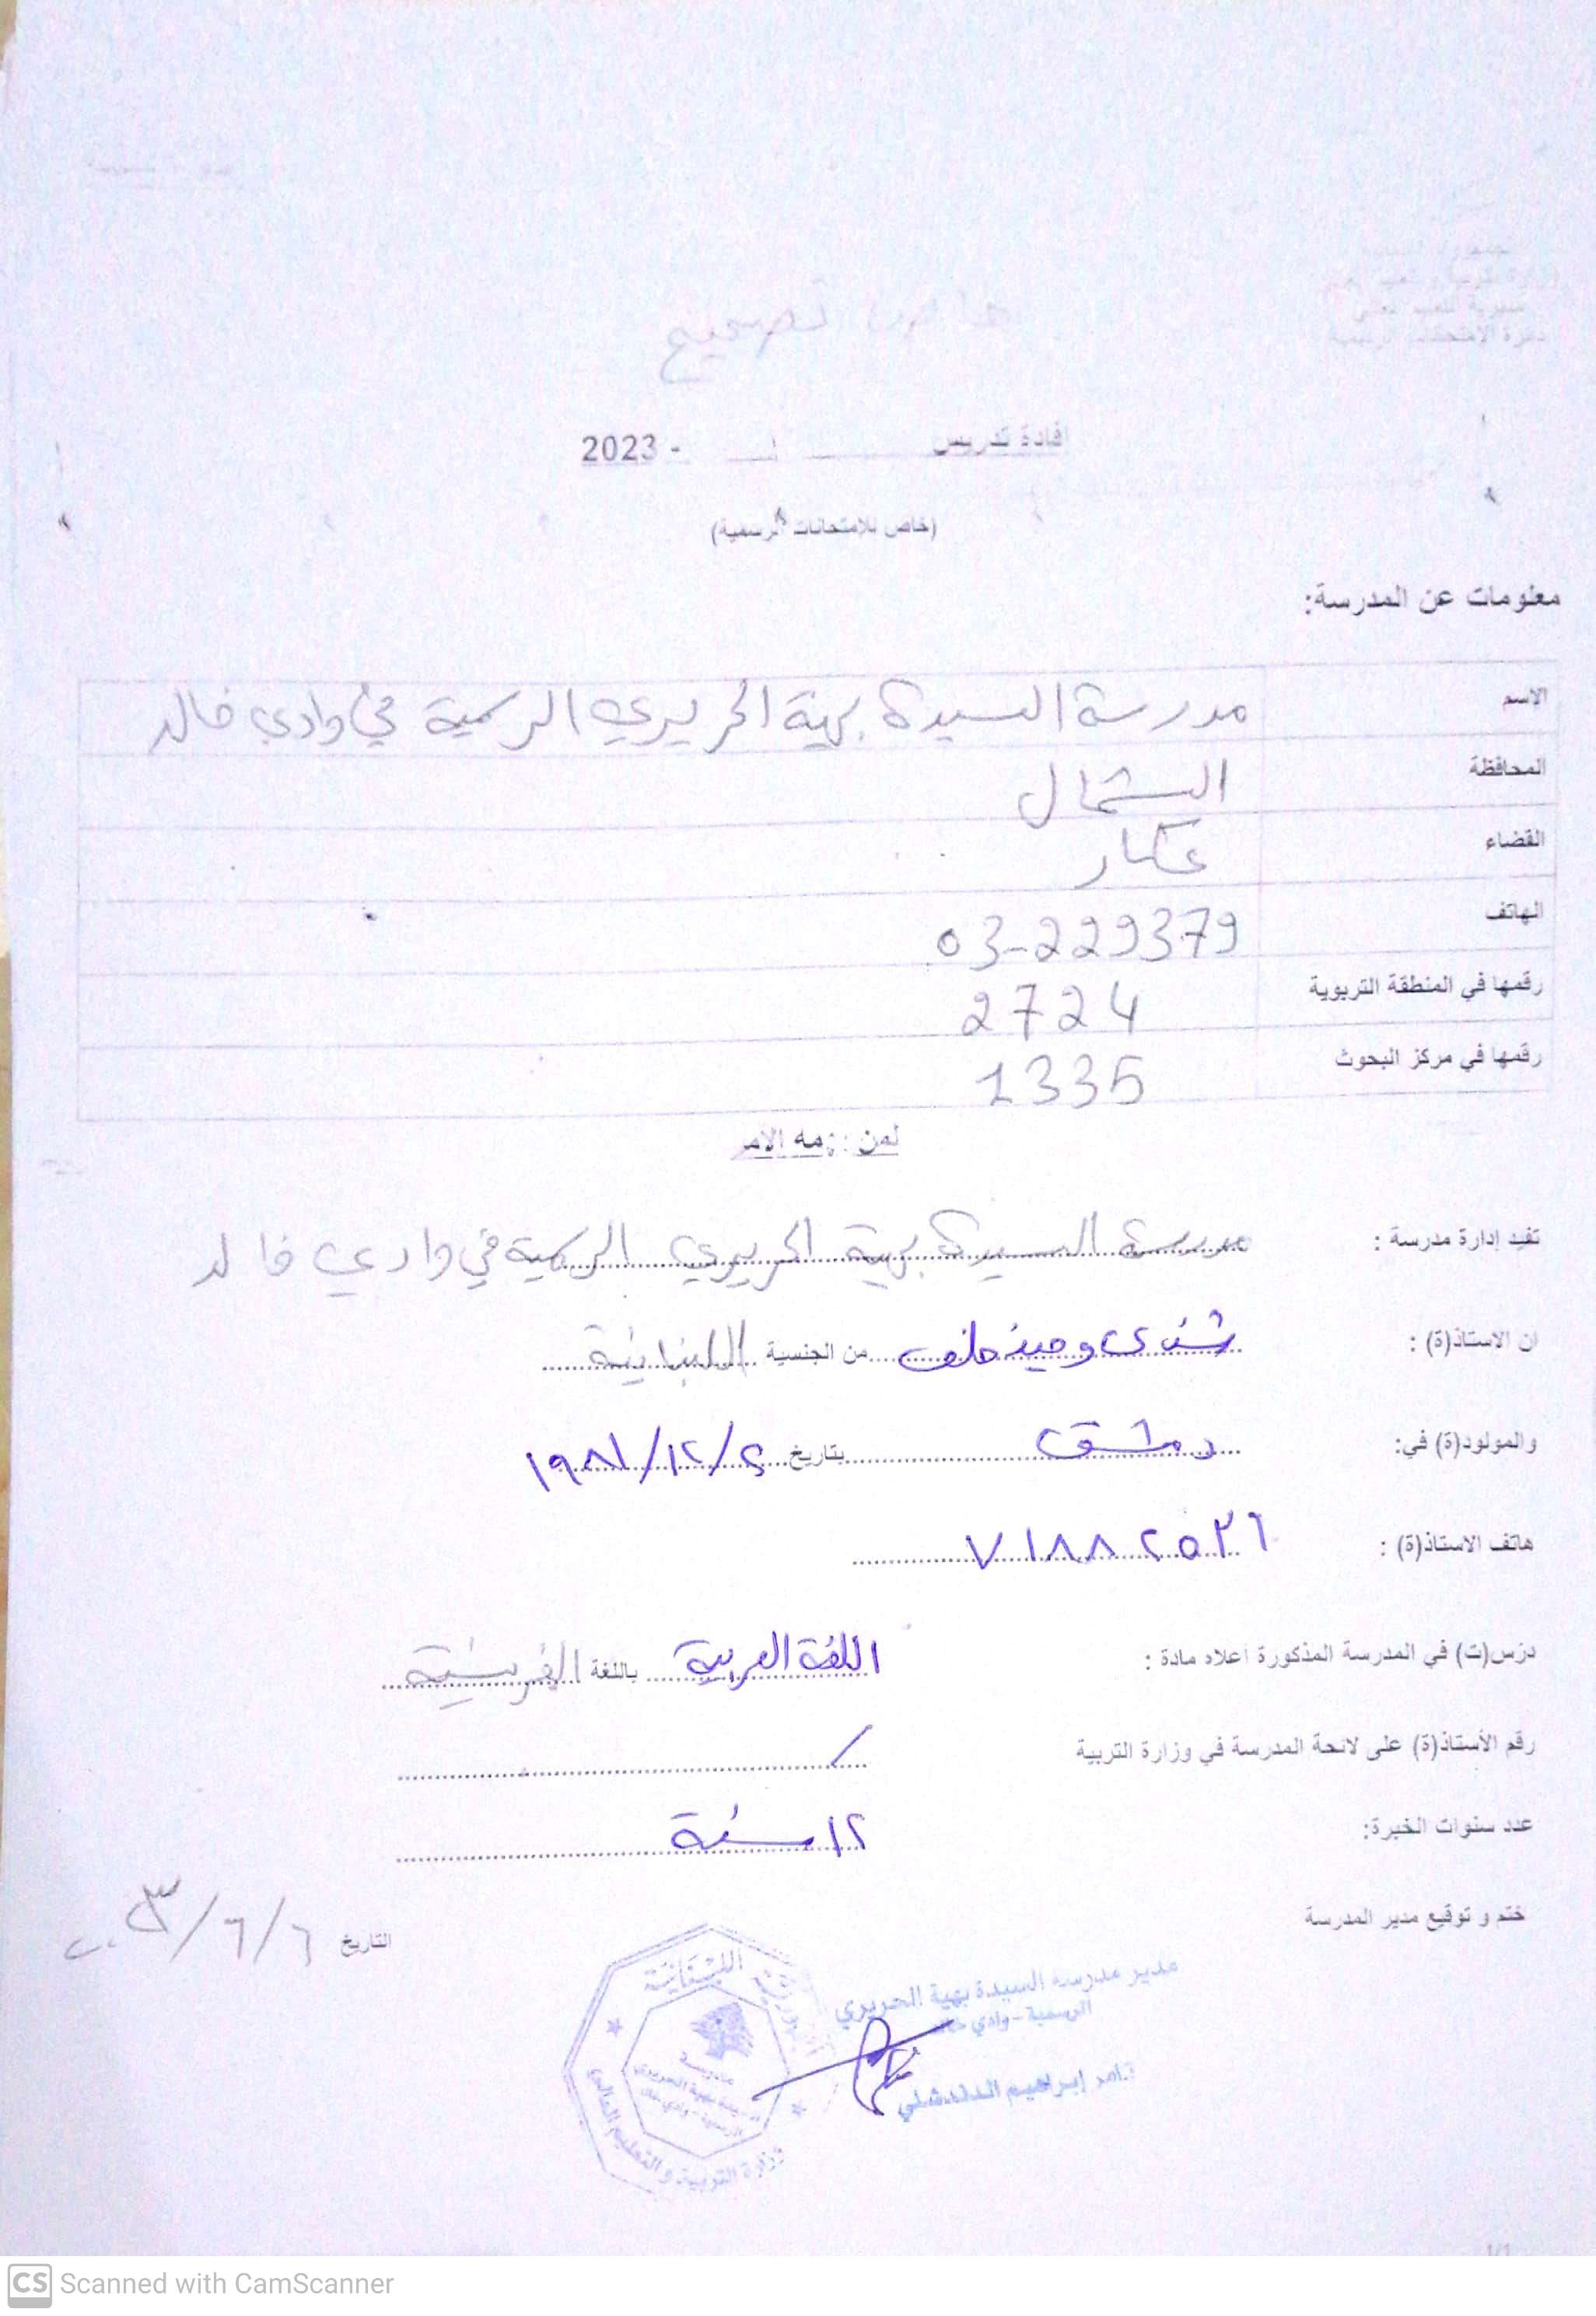 تصحيح
افادة تدريس - 2023
(خاص للامتحانات الرسمية)
معلومات عن المدرسة:
الاسم مدرسة السيدة بهية الحريري الرسمية في وادي خالد
المحافظة الشمال
القضاء عكار
الهاتف 03-229379
رقمها في المنطقة التربوية 2724
رقمها في مركز البحوث 1335
لمن يهمه الامر
تفيد إدارة مدرسة : مدرسة السيدة بهية الحريري الرسمية في وادي خالد
ان الاستاذ(ة) : خلف من الجنسية اللبنانية
والمولود(ة) في: دمشق بتاريخ ٢/١٢/١٩٨١
هاتف الاستاذ(ة) : ٧١٨٨٢٥٣٦
درّس(ت) في المدرسة المذكورة اعلاه مادة : اللغة العربية باللغة الفرنسية
رقم الأستاذ(ة) على لائحة المدرسة في وزارة التربية /
عدد سنوات الخبرة: ١٢ سنة
ختم و توقيع مدير المدرسة
التاريخ ٦/٦/٢٠٢٣
مدير مدرسة السيدة بهية الحريري
الرسمية - وادي خالد
ثامر إبراهيم الدندشلي
الجمهورية اللبنانية
وزارة التربية والتعليم العالي
CS Scanned with CamScanner